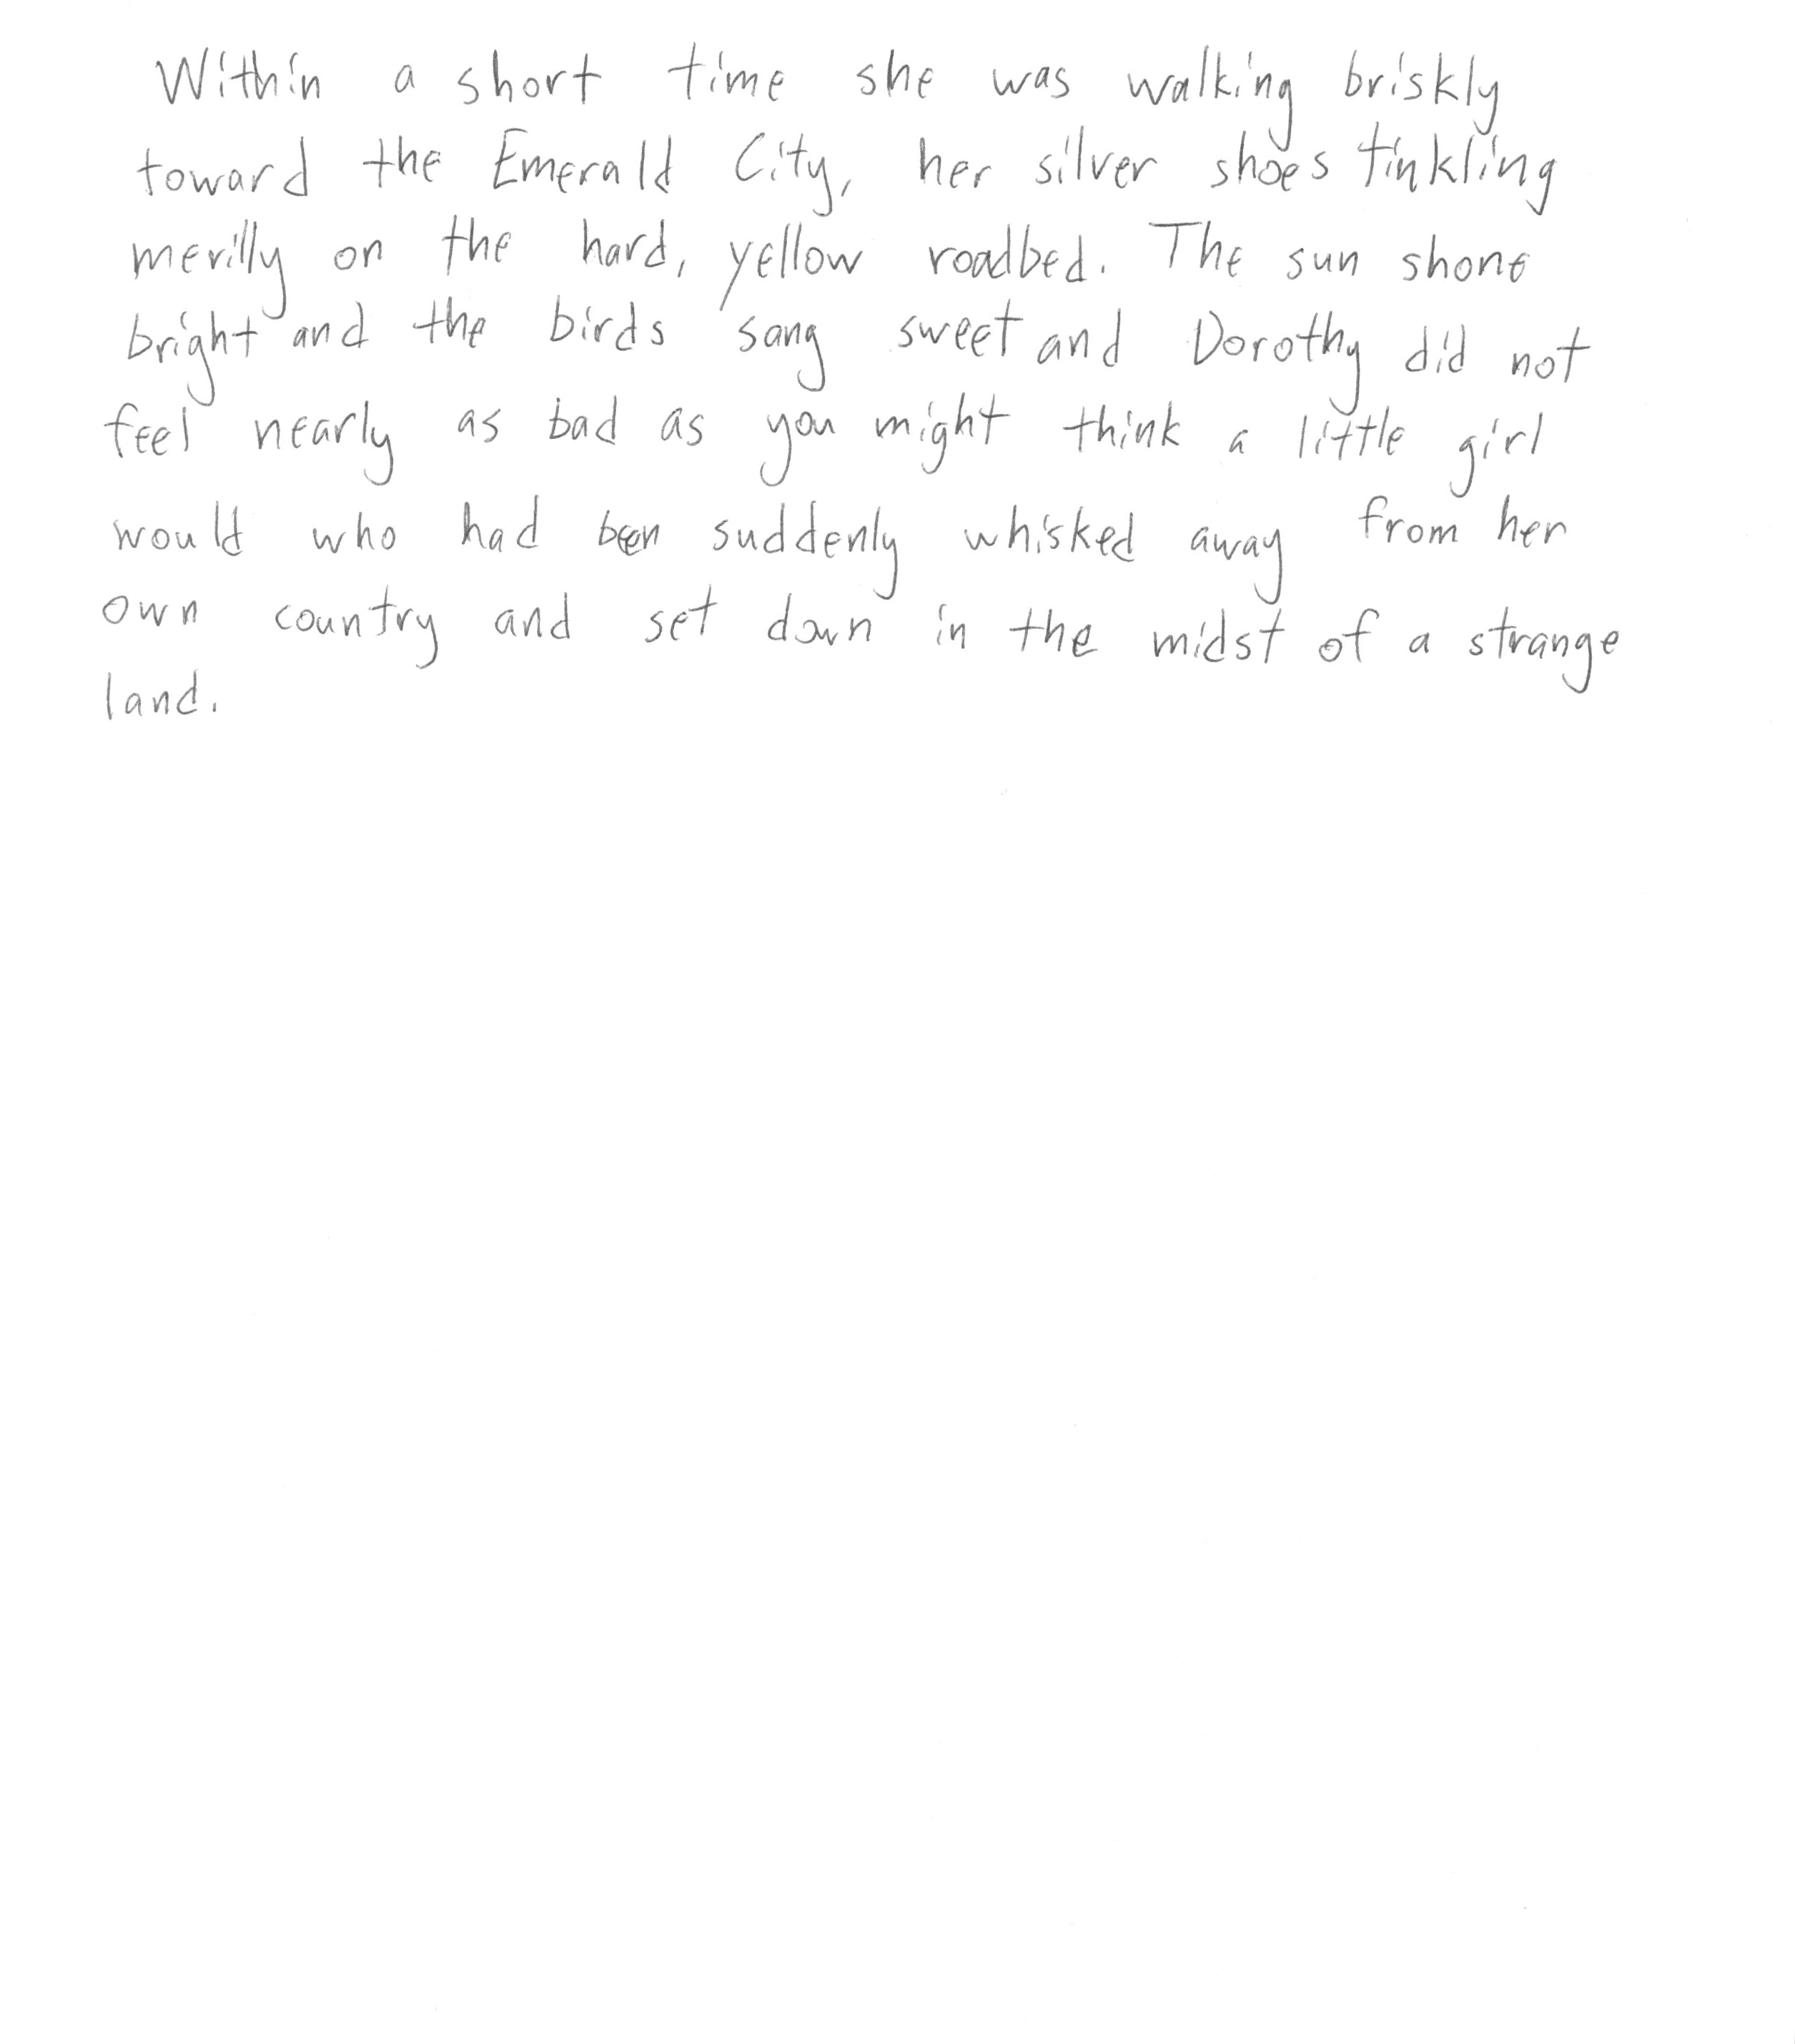 Within a short time she was walking briskly
toward the Emerald City, her silver shoes tinkling
merilly on the hard, yellow roadbed. The sun shone
bright and the birds sang sweet and Dorothy did not
feel nearly as bad as you might think a little girl
would who had been suddenly whisked away from her
own country and set down in the midst of a strange
land.